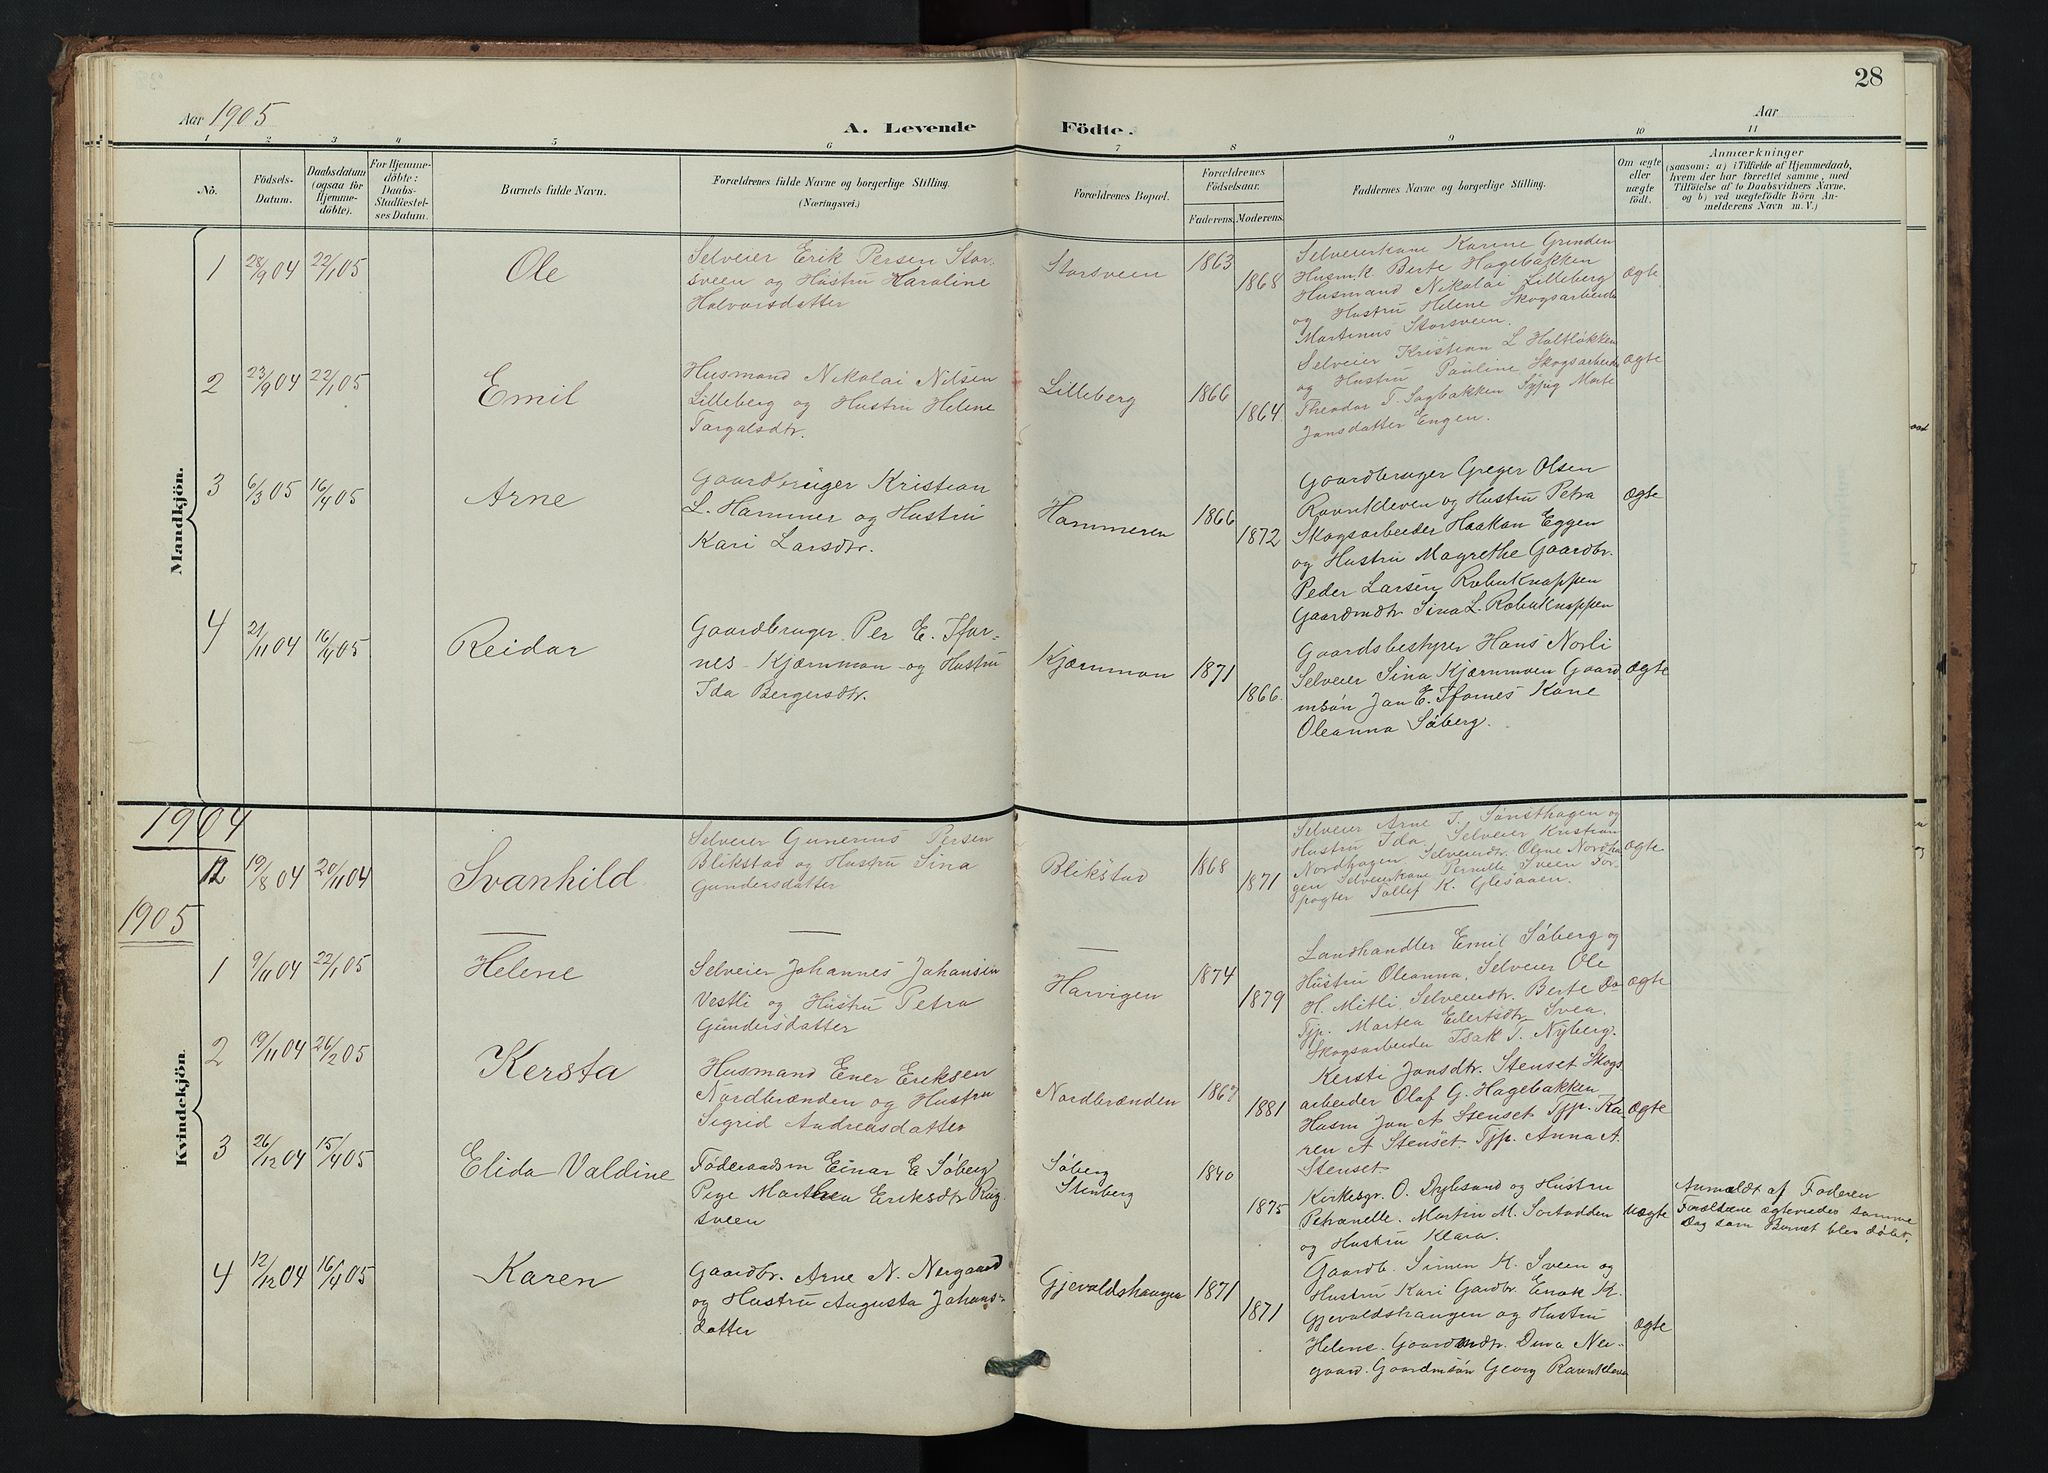 28
Aar 1905
A. Levende Födte.
Aar
1 2 3 4 5 6 7 8 9 10 11
Nö.
Födsels-Datum.
Daabsdatum (ogsaa för Hjemme-döbte).
For Hjemme-döbte: Daabs-Stadfæstel-ses Datum.
Barnets fulde Navn.
Forældrenes fulde Navne og borgerlige Stilling. (Næringsvei.)
Forældrenes Bopæl.
Forældrenes Födselsaar.
Faderens. Moderens.
Faddernes Navne og borgerlige Stilling.
Om ægte eller uægte födt.
Anmærkninger
(saasom: a) i Tilfælde af Hjemmedaab,
hvem der har forrettet samme, med
Tilföielse af to Daabsvidners Navne,
og b) ved uægtefödte Börn An-
melderens Navn m. V.)
Mandkjön.
1 28/9 04 22/1 05 Ole
Selveier Erik Persen Stor-
sveen og Hustru Karoline
Halvorsdatter
Storsveen 1863 1868
Selveierkone Karine Grinden
Husm.k. Berte Hagebakken
Husmand Nikolai Lilleberg
og Hustru Helene Skogsarbeider
Martinus Storsveen.
Ægte
2 23/9 04 22/1 05 Emil
Husmand Nikolai Nilsen
Lilleberg og Hustru Helene
Targalsdtr.
Lilleberg 1866 1864
Selveier Kristian L Holtløkken
og Hustru Pauline Skogsarbeider
Theodor T. Sagbakken Sypig Marte
Jonsdatter Engen.
Ægte
3 6/3 05 16/4 05 Arne
Gaardbruger Kristian
L. Hammer og Hustru
Kari Larsdtr.
Hammeren 1866 1872
Gaardbruger Greger Olsen
Ravnkleven og Hustru Petra
Skogsarbeider Haakan Eggen
og Hustru Magrethe Gaardbr.
Peder Larsen Rabuknappen
Gaardmdtr Sina L. Rabuknappen
Ægte
4 21/11 04 16/4 05 Reidar
Gaardbruger Per E.
nes Kjærnmon og Hustru
Ida Bergersdtr.
Kjærnmon 1871 1866.
Gaardsbestyrer Hans Norli
Selveier Sina Kjærnmoen Gaard
msøn Jon E. Kone
Oleanna Søberg.
Ægte
1904
Kvindekjön.
12 19/8 04 20/11 04 Svanhild
Selveier Gunerius Persen
Blikstad og Hustru Sina
Gundersdatter
Blikstad 1868 1871
Selveier Arne T. Sønsthagen og
Hustru Ida, Selveier Kristian
Nordhagen, Selveierdtr. Oline Nordha
gen Selveierkone Pernille Sveen For
pagter Tollef K. Glesaaen.
Ægte
1905
1 9/11 04 22/1 05 Helene
Selveier Johannes Johansen
Vestli og Hustru Petra
Gundersdatter
Harvigen 1874 1879
Landhandler Emil Søberg og
Hustru Oleanna, Selveier Ole
H. Mitli Selveierdtr. Berte Do
Tjp. Martea Eilertsdtr Svea.
Skogsarbeider Isak T. Nyberg.
Ægte
2 19/11 04 26/2 05 Kersta
Husmand Ener Eriksen
Nordbrænden og Hustru
Sigrid Andreasdatter
Nordbrænden 1867 1881
Kersti Jonsdtr. Stenset Skogs
arbeider Olaf G. Hagebakken
Husm Jon A Stenset Tjp. Ka-
ren A Stenset Tjp. Anna A.
Stenset
Ægte
3 26/12 04 15/4 05 Elida Valdine
Føderaadsm Einar E Søberg
Pige Marthea Eriksdtr
sveen
Søberg
Stenberg
1840 1875
Kirkesgr. O. og Hustru
Petranelle. Martin M. Sortodden
og Hustru Klara.
Uægte
Anmeldt af Faderen
Forældrene ægteviedes samme
Dag som Barnet blev døbt.
4 12/12 04 16/4 05 Karen
Gaardbr. Arne N. Nergaard
og Hustru Augusta Johans-
datter
Gjevaldshaugen 1871 1871
Gaardb. Simen K. Sveen og
Hustru Kari Gardbr. Enok K.
Gjevaldshaugen og Hustru
Helene. Gaardmdtr. Ner-
gaard. Gaardmsøn Georg Ravnkleven
Ægte